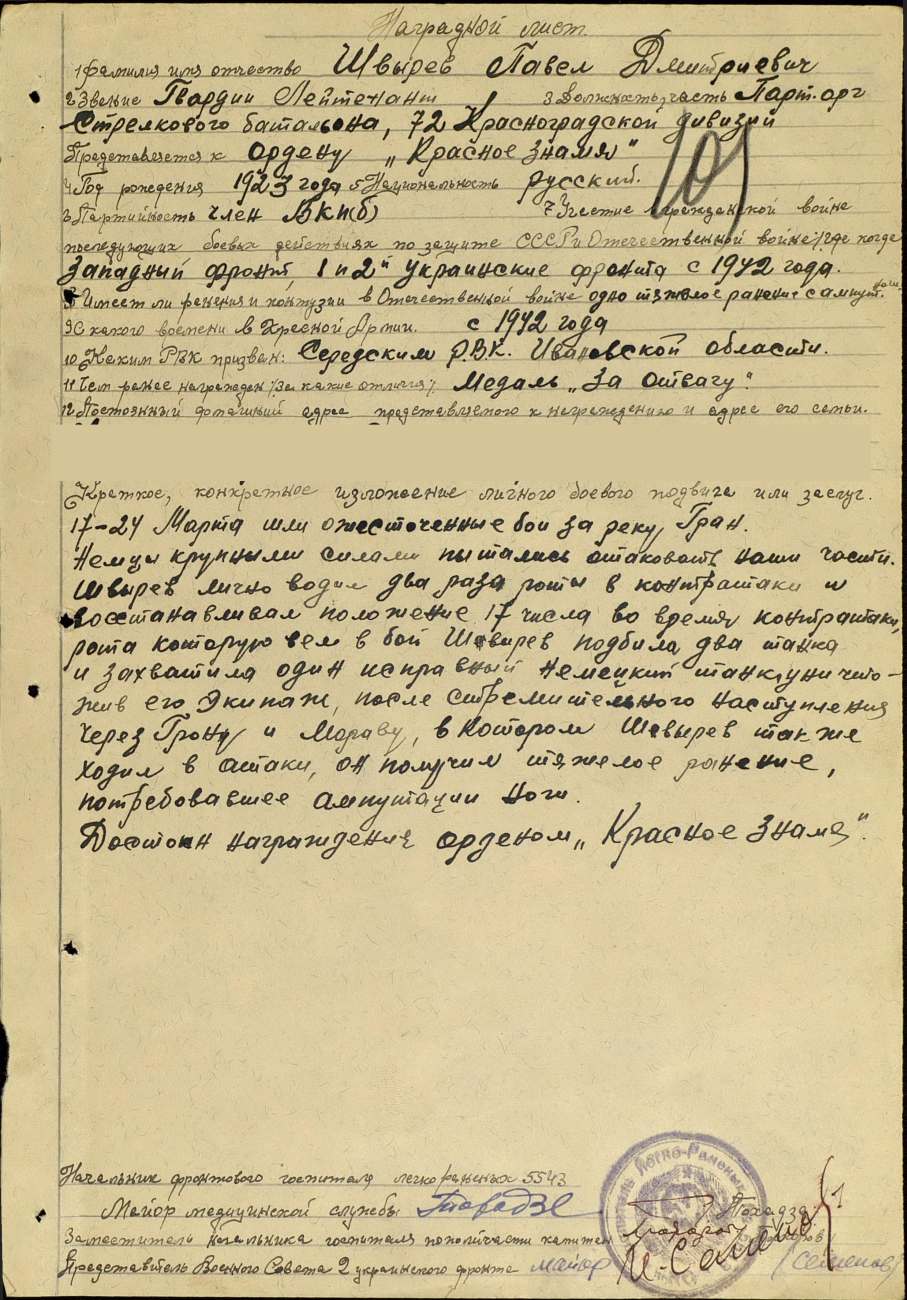 Наградной лист
1 Фамилия имя отчество Швырев Павел Дмитриевич
2 Звание Гвардии Лейтенант 3 Должность, часть Парт.орг
Стрелкового батальона, 72 Красноградской дивизии
Представляется к ордену „Красное Знамя"
4 Год рождения 1923 года 5 Национальность русский.
6 Партийность член ВКП(б) 7 Участие в гражданской войне
последующих боевых действиях по защите СССР и Отечественной войне /где когда
Западный фронт, 1 и 2й Украинские фронта с 1942 года.
8 Имеет ли ранения и контузии в Отечественной войне одно тяжелое ранение с ампут. ноги.
9 С какого времени в Красной Армии. с 1942 года
10 Каким РВК призван: Середским Р.В.К. Ивановской области.
11 Чем ранее награжден /за какие отличия/ Медаль „За отвагу".
12 Постоянный домашний адрес представляемого к награждению и адрес его семьи.
Краткое, конкретное изложение личного боевого подвига или заслуг.
17-24 Марта шли ожесточенные бои за реку Гран.
Немцы крупными силами пытались атаковать наши части.
Швырев лично водил два раза роты в контратаки и
восстанавливал положение 17 числа во время контратаки,
рота которую вел в бой Швырев подбила два танка
и захватила один исправный немецкий танк уничто-
жив его экипаж, после стремительного наступления
через Грону и Мораву, в котором Швырев также
ходил в атаки, он получил тяжелое ранение,
потребовавшее ампутации ноги.
Достоин награждения орденом „Красное Знамя".
Начальник фронтового госпиталя легко раненых 5543
Майор медицинской службы
Заместитель начальника госпиталя по политчасти капитан
Представитель Военного Совета 2 украинского фронта майор (Семенов)